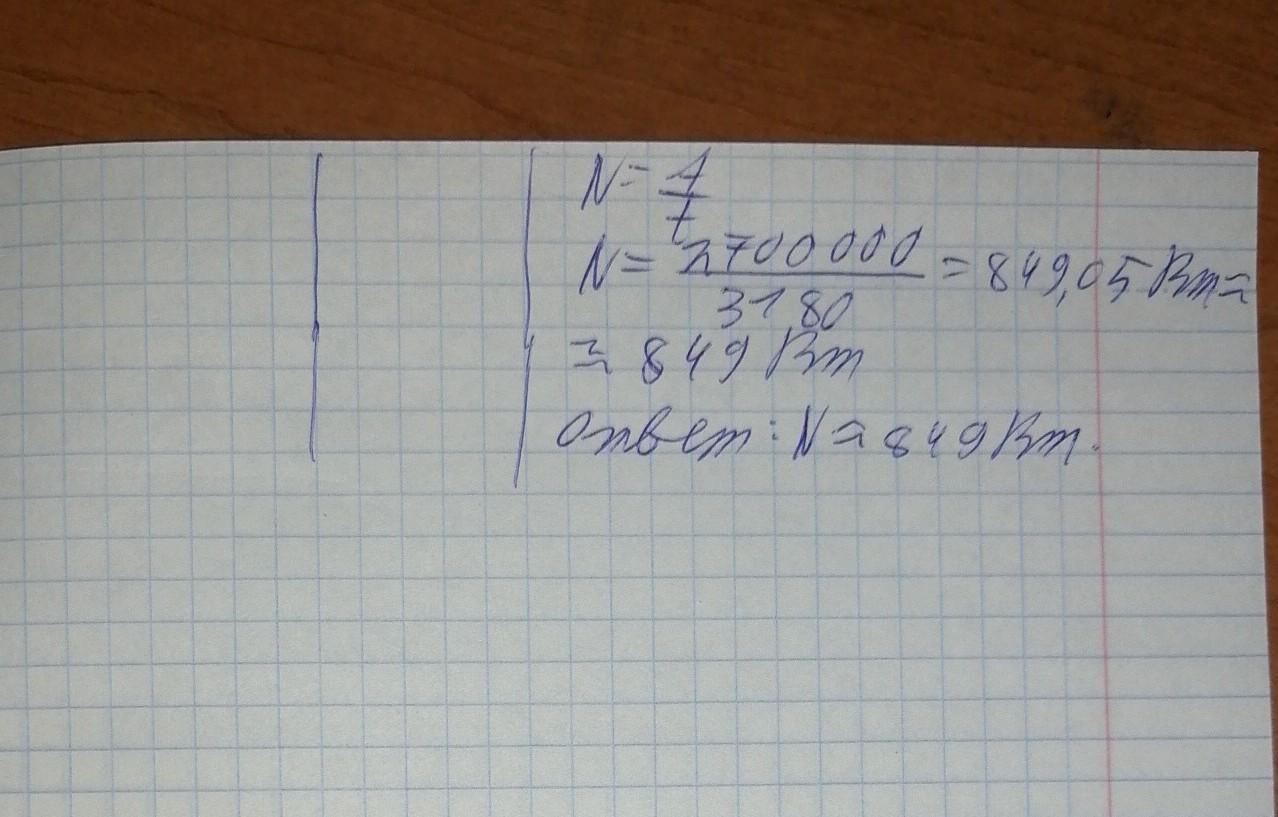 N = A/t
N = 2700000/3180 = 849,05 Вт ≈
≈ 849 Вт
Ответ: N ≈ 849 Вт.